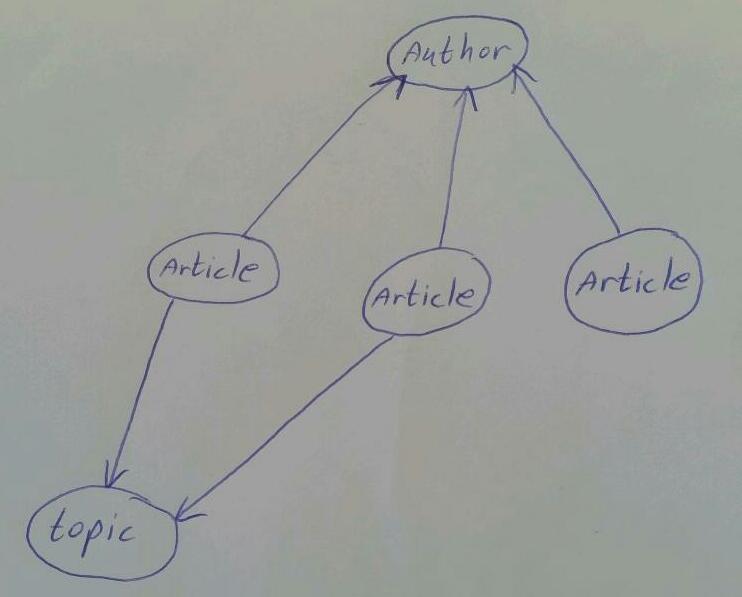 Author
Article
Article
Article
topic